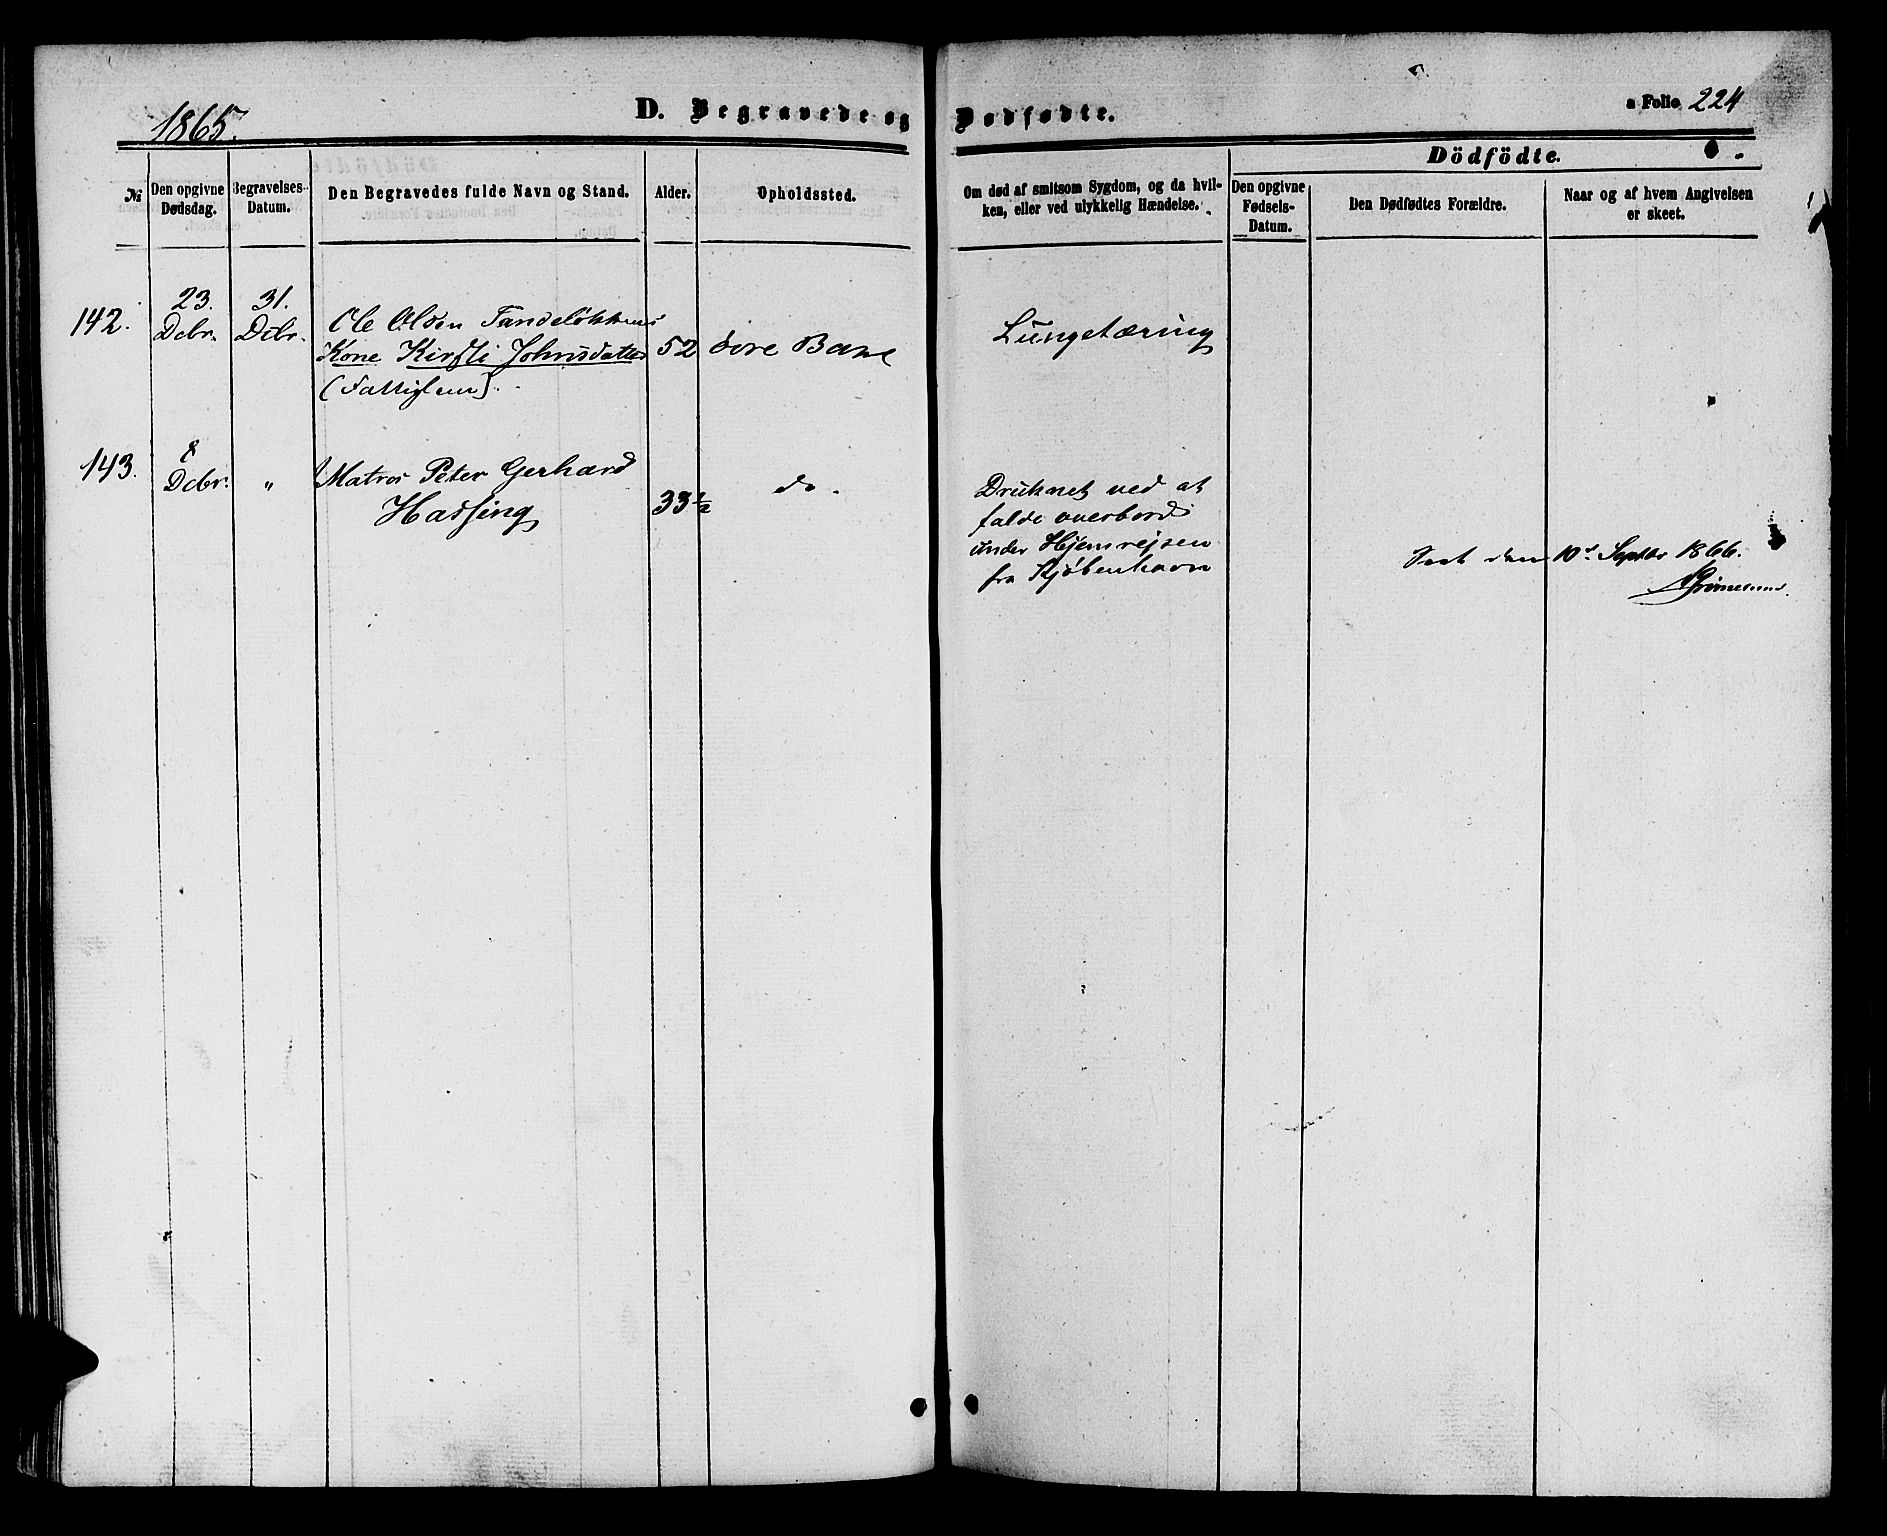 1865.
D. Begravede og Dødfødte.
a Folio 224
Dödfödte.
№
Den opgivne Dødsdag.
Begravelses-Datum.
Den Begravedes fulde Navn og Stand.
Alder.
Opholdssted.
Om død af smitsom Sygdom, og da hvil-
ken, eller ved ulykkelig Hændelse.
Den opgivne Fødsels-Datum.
Den Dødfødtes Forældre.
Naar og af hvem Angivelsen
er skeet.
142. 23. Dcbr. 31. Dcbr.
Ole Olsen Tandeløkkens
Kone Kirsti Johnsdatter 52 Bane
(Fattiglem).
Lungetæring
143. 8 Dcbr. "
Matros Peter Gerhard
Hassing 33½ do.
Druknet ved at
falde overbord
under Hjemrejsen
fra Kjøbenhavn
Seet den 10d Septbr 1866.